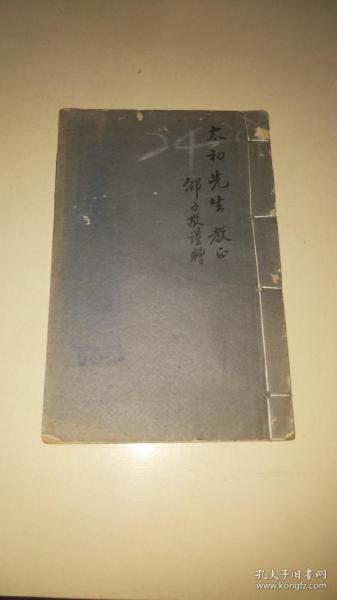 太初先生教正
邹子敬谨赠
孔夫子旧书网
www.kongfz.com